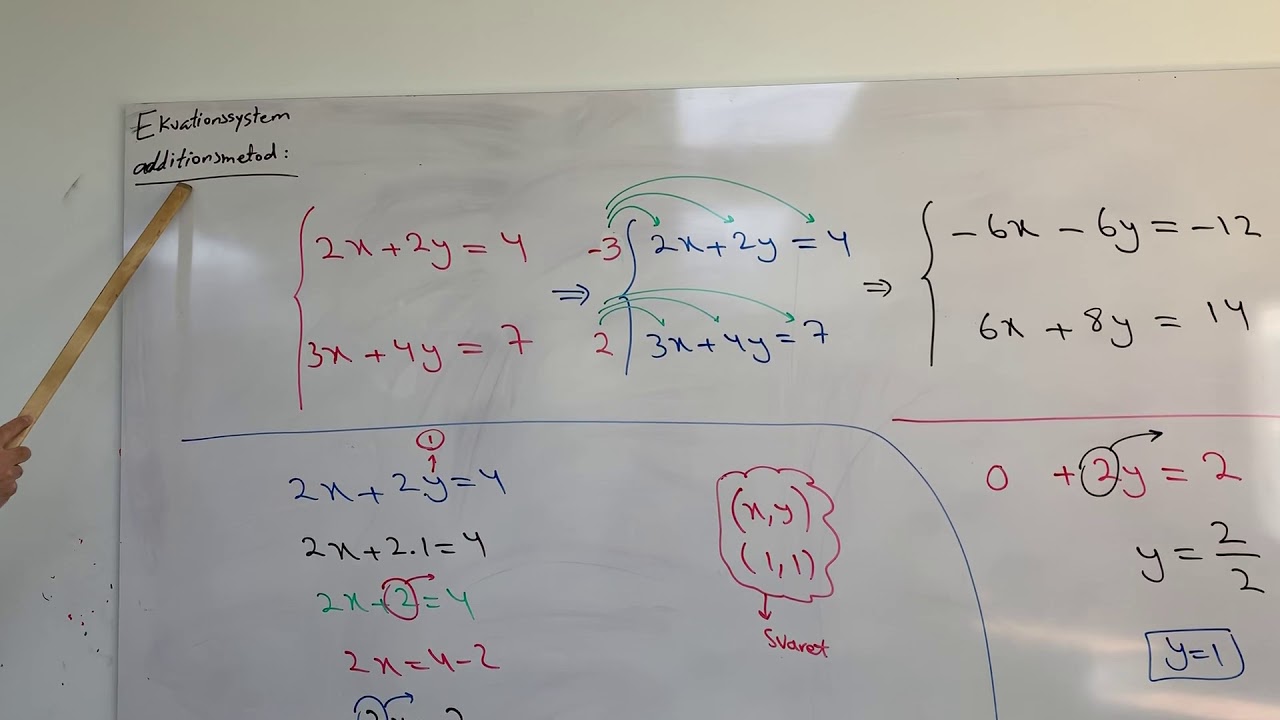 Ekvationssystem
additionsmetod:
2x+2y=4
3x+4y=7
⇒
-3 2x+2y=4
2 3x+4y=7
⇒
-6x-6y=-12
6x+8y=14
0 +2y=2
y=2/2
y=1
1
2x+2y=4
2x+2.1=4
2x+2=4
2x=4-2
(x,y)
(1,1)
Svaret